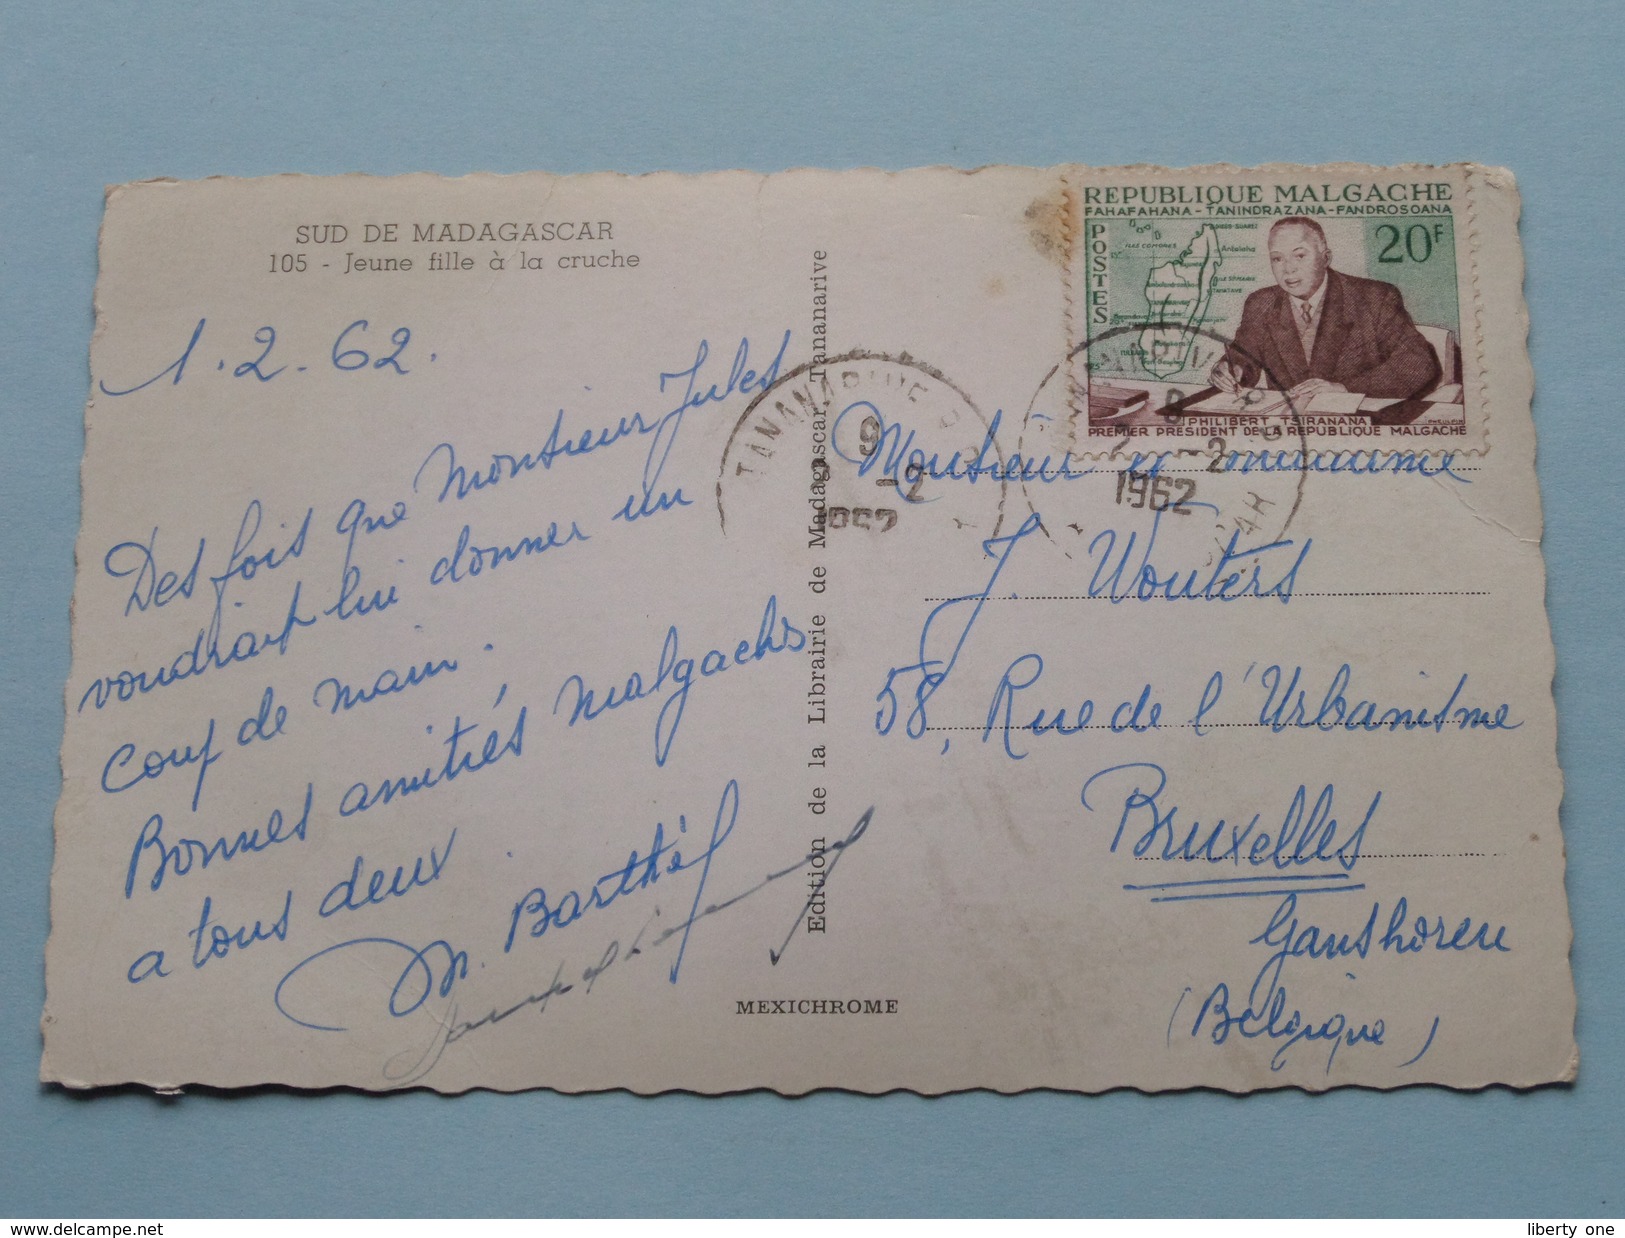 SUD DE MADAGASCAR
105 - Jeune fille à la cruche
1.2.62.
Des fois que Monsieur Jules
voudrait lui donner un
coup de main.
Bonnes amitiés malgachs
a tous deux.
M. Barthél
Edition de la Librairie de Madagascar, Tananarive
MEXICHROME
REPUBLIQUE MALGACHE
FAHAFAHANA-TANINDRAZANA-FANDROSOANA
POSTES
20F
PHILIBERT TSIRANANA
PREMIER PRESIDENT DE LA REPUBLIQUE MALGACHE
TANANARIVE
9
-2
1962
TANANARIVE
-2
1962
Monsieur
J. Wouters
58, Rue de l'Urbanisme
Bruxelles
Ganshoren
(Belgique)
delcampe.net
liberty one